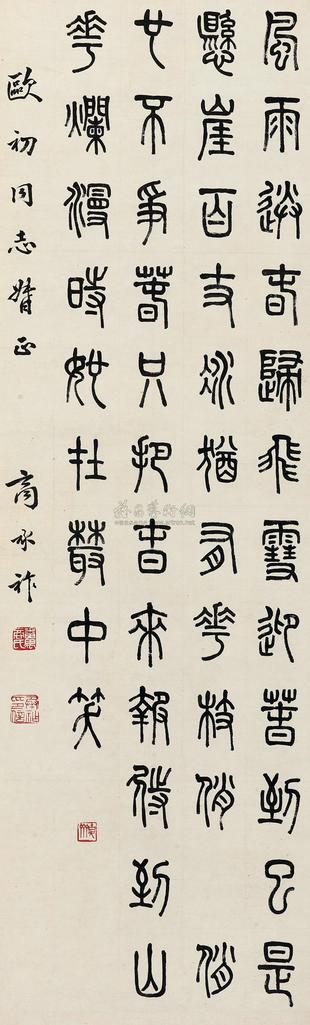 風雨送春歸飛雪迎春到已是
懸崖百丈冰猶有花枝俏俏
也不爭春只把春來報待到山
花爛漫時她在叢中笑
歐初同志正
商承祚